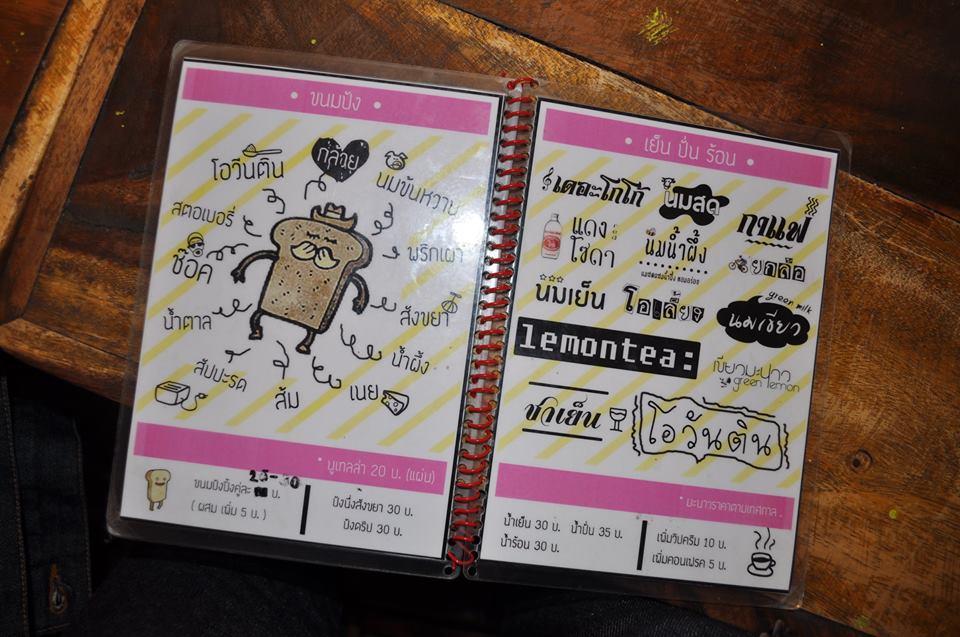 • ขนมปัง •
กล้วย
โอวันติน
นมข้นหวาน
สตอเบอรี่
พริกเผา
ช๊อค
สังขยา
น้ำตาล
น้ำผึ้ง
สับปะรด
ส้ม
เนย
• นูเทลล่า 20 บ. (แผ่น)
ขนมปังปิ้งคู่ละ 25-30 บ.
( ผสม เพิ่ม 5 บ. )
ปังนึ่งสังขยา 30 บ.
ปังดริป 30 บ.
• เย็น ปั่น ร้อน •
เดอะโกโก้
นมสด
กาแฟ
แดง
โซดา
นมน้ำผึ้ง
ยกล้อ
นมเย็น
โอเลี้ยง
green milk
นมเขียว
lemontea:
เขียวมะนาว
green lemon
ชาเย็น
โอวันติน
• มะนาวราคาตามเทศกาล •
น้ำเย็น 30 บ. น้ำปั่น 35 บ.
น้ำร้อน 30 บ.
เพิ่มวิปครีม 10 บ.
เพิ่มคอนเฟรค 5 บ.